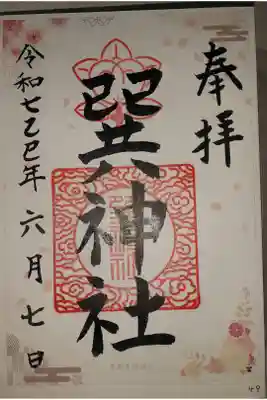 奉拝
巽神社
令和七乙巳年 六月七日
49